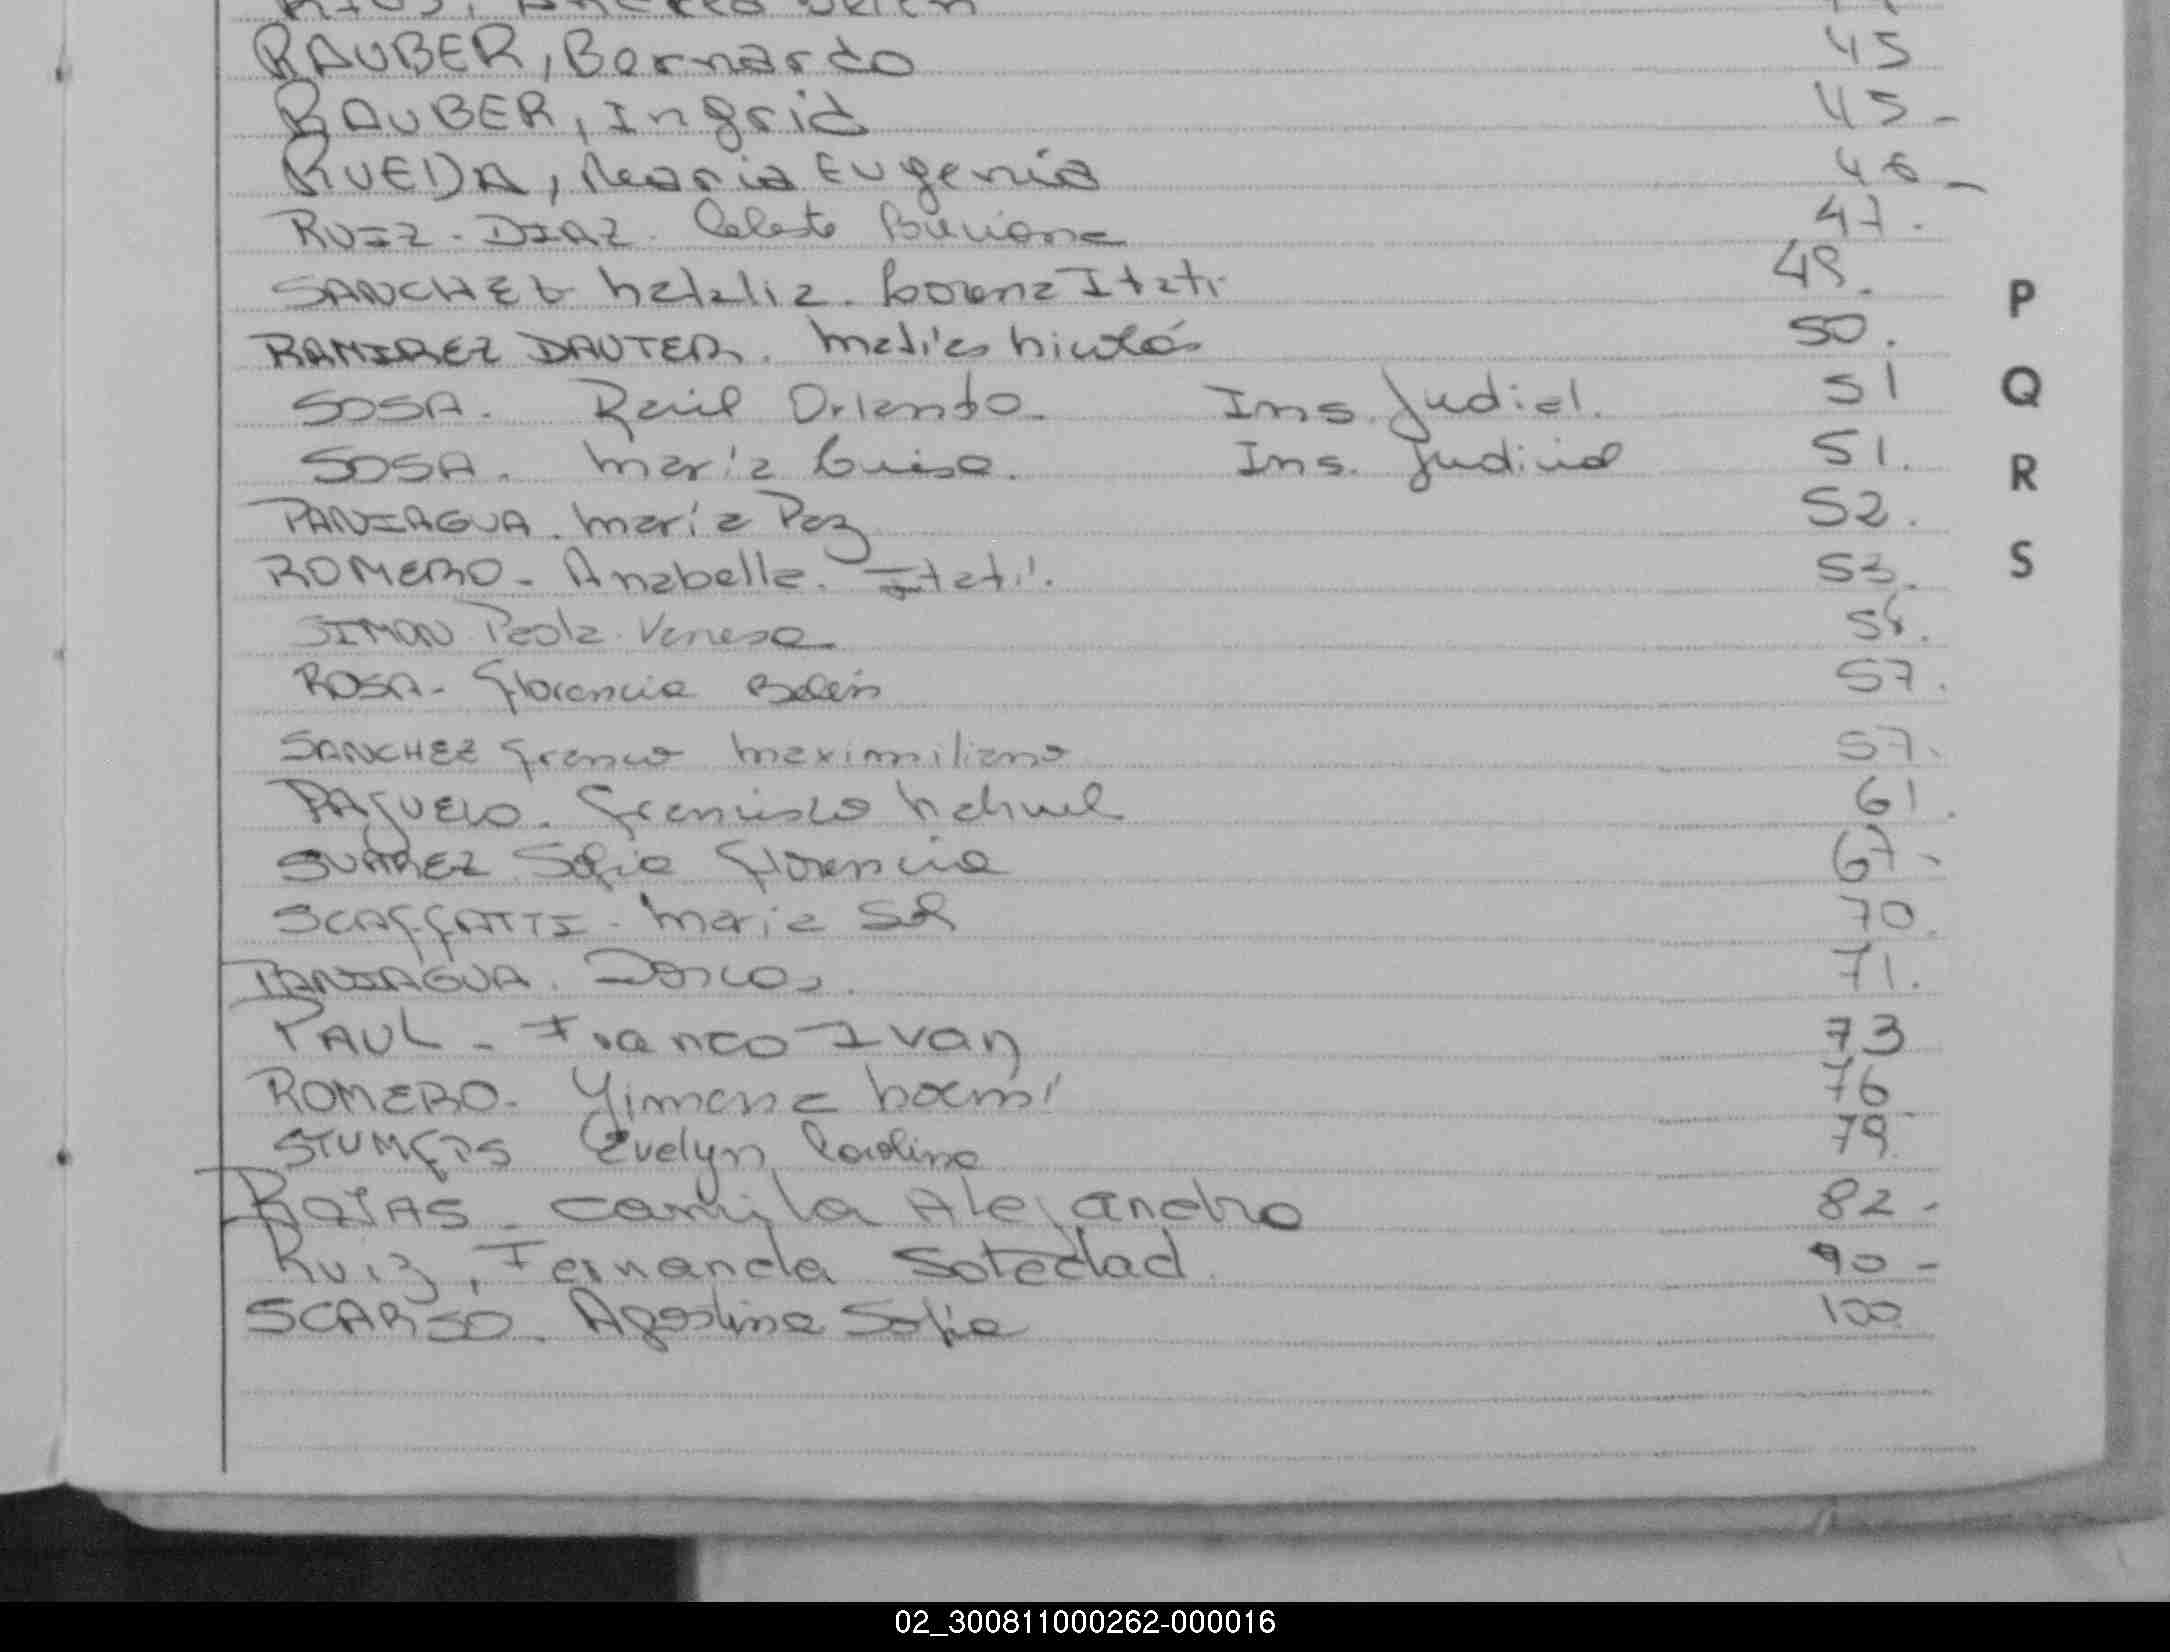 RAUBER, Bernardo 45
RAUBER, Ingrid 45 -
RUEDA, Maria Eugenia 46 -
RUIZ - DIAZ. Celeste 47.
SANCHEZ Natalia. Lorena Itati 49.
RAMIREZ DAUTER. Matías Nicolás 50.
SOSA. Raúl Orlando. Ins. Judicial. 51
SOSA. María Luisa. Ins. Judicial 51.
PANIAGUA. María Paz 52.
ROMERO - Anabella. Itatí. 53.
SIMON Paola Vanesa
ROSA - Florencia Belén 57.
SANCHEZ Franco Maximiliano 57.
Francisco Nahuel 61.
SUAREZ Sofia Florencia 67 -
SCAFFATTI - Maria Sol 70.
PANIAGUA. Dorcas. 71.
PAUL - Franco Ivan 73
ROMERO - Yimena Noemí 76
Evelyn Carolina 79
ROJAS - Camila Alejandra 82 -
Ruiz, Fernanda Soledad. 90 -
SCARSO. Agostina Sofia 100
P
Q
R
S
02_300811000262-000016